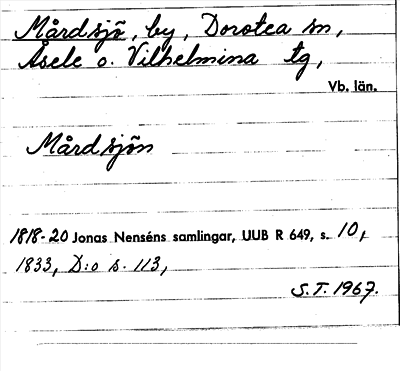 Mårdsjö, by, Dorotea sn,
Åsele o. Vilhelmina tg,
Vb. län.
Mårdsjön
1818-20 Jonas Nenséns samlingar, UUB R 649, s. 10,
1833, D:o s. 113,
S.T. 1967.